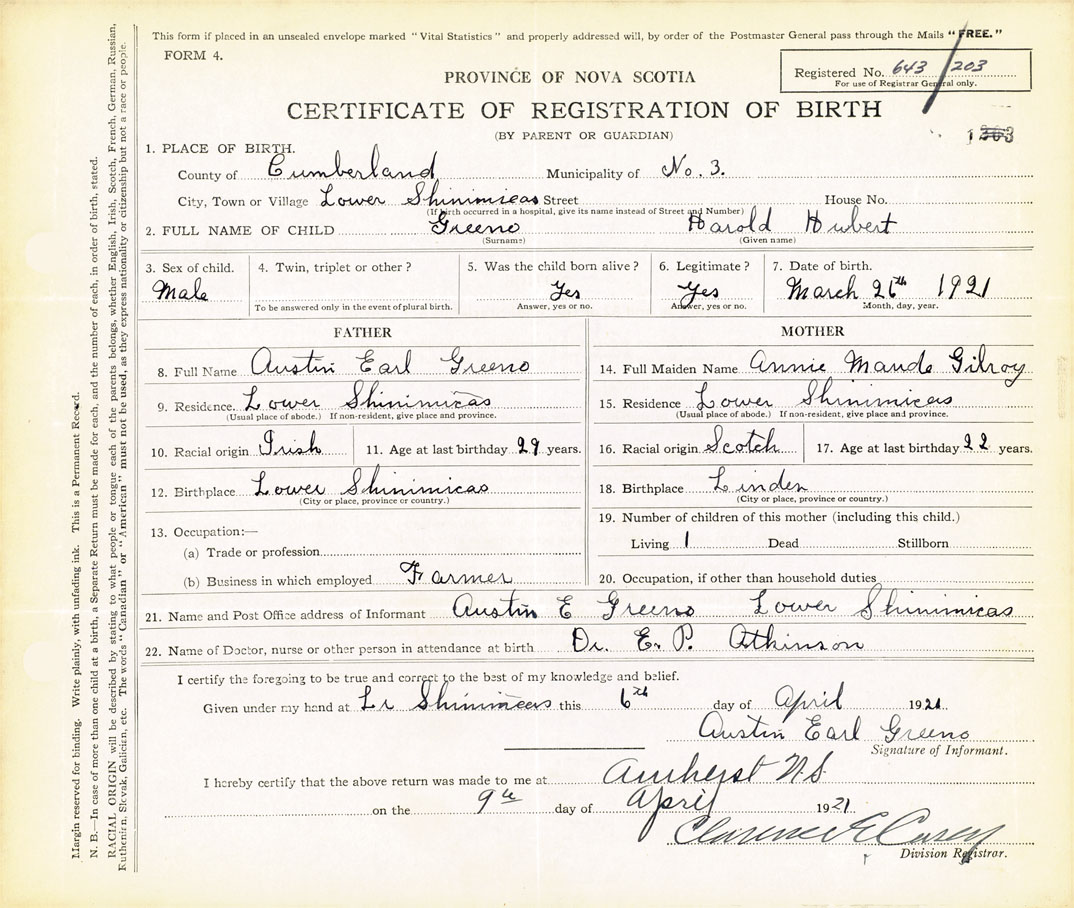 This form if placed in an unsealed envelope marked "Vital Statistics" and properly addressed will, by order of the Postmaster General pass through the Mails "FREE."
FORM 4.
Registered No. 643/203
For use of Registrar General only.
PROVINCE OF NOVA SCOTIA
CERTIFICATE OF REGISTRATION OF BIRTH
(BY PARENT OR GUARDIAN)
1. PLACE OF BIRTH.
County of Cumberland Municipality of No. 3.
City, Town or Village Lower Shinimicas Street House No.
(If birth occurred in a hospital, give its name instead of Street and Number)
2. FULL NAME OF CHILD Greeno Harold Hubert
(Surname) (Given name)
3. Sex of child. 4. Twin, triplet or other? 5. Was the child born alive? 6. Legitimate? 7. Date of birth.
Male Yes Yes March 26th 1921
To be answered only in the event of plural birth. Answer, yes or no. Answer, yes or no. Month, day, year.
FATHER
8. Full Name Austin Earl Greeno
9. Residence. Lower Shinimicas
(Usual place of abode.) If non-resident, give place and province.
10. Racial origin Irish 11. Age at last birthday 29 years.
12. Birthplace Lower Shinimicas
(City or place, province or country.)
13. Occupation:—
(a) Trade or profession
(b) Business in which employed Farmer
MOTHER
14. Full Maiden Name Annie Maude Gilroy
15. Residence Lower Shinimicas
(Usual place of abode.) If non-resident, give place and province.
16. Racial origin Scotch 17. Age at last birthday 22 years.
18. Birthplace Linden
(City or place, province or country.)
19. Number of children of this mother (including this child.)
Living 1 Dead Stillborn
20. Occupation, if other than household duties
21. Name and Post Office address of Informant Austin E Greeno Lower Shinimicas
22. Name of Doctor, nurse or other person in attendance at birth Dr. E. P. Atkinson
I certify the foregoing to be true and correct to the best of my knowledge and belief.
Given under my hand at Lr Shinimicas this 6th day of April 1921.
Austin Earl Greeno
Signature of Informant.
I hereby certify that the above return was made to me at Amherst N.S.
on the 9th day of April 1921
Clarence E Casey
Division Registrar.
Margin reserved for binding. Write plainly, with unfading ink. This is a Permanent Record.
N. B.—In case of more than one child at a birth, a Separate Return must be made for each, and the number of each, in order of birth, stated.
RACIAL ORIGIN will be described by stating to what people or tongue each of the parents belongs, whether English, Irish, Scotch, French, German, Russian,
Ruthenian, Slovak, Galician, etc. The words "Canadian" or "American" must not be used, as they express nationality or citizenship but not a race or people.